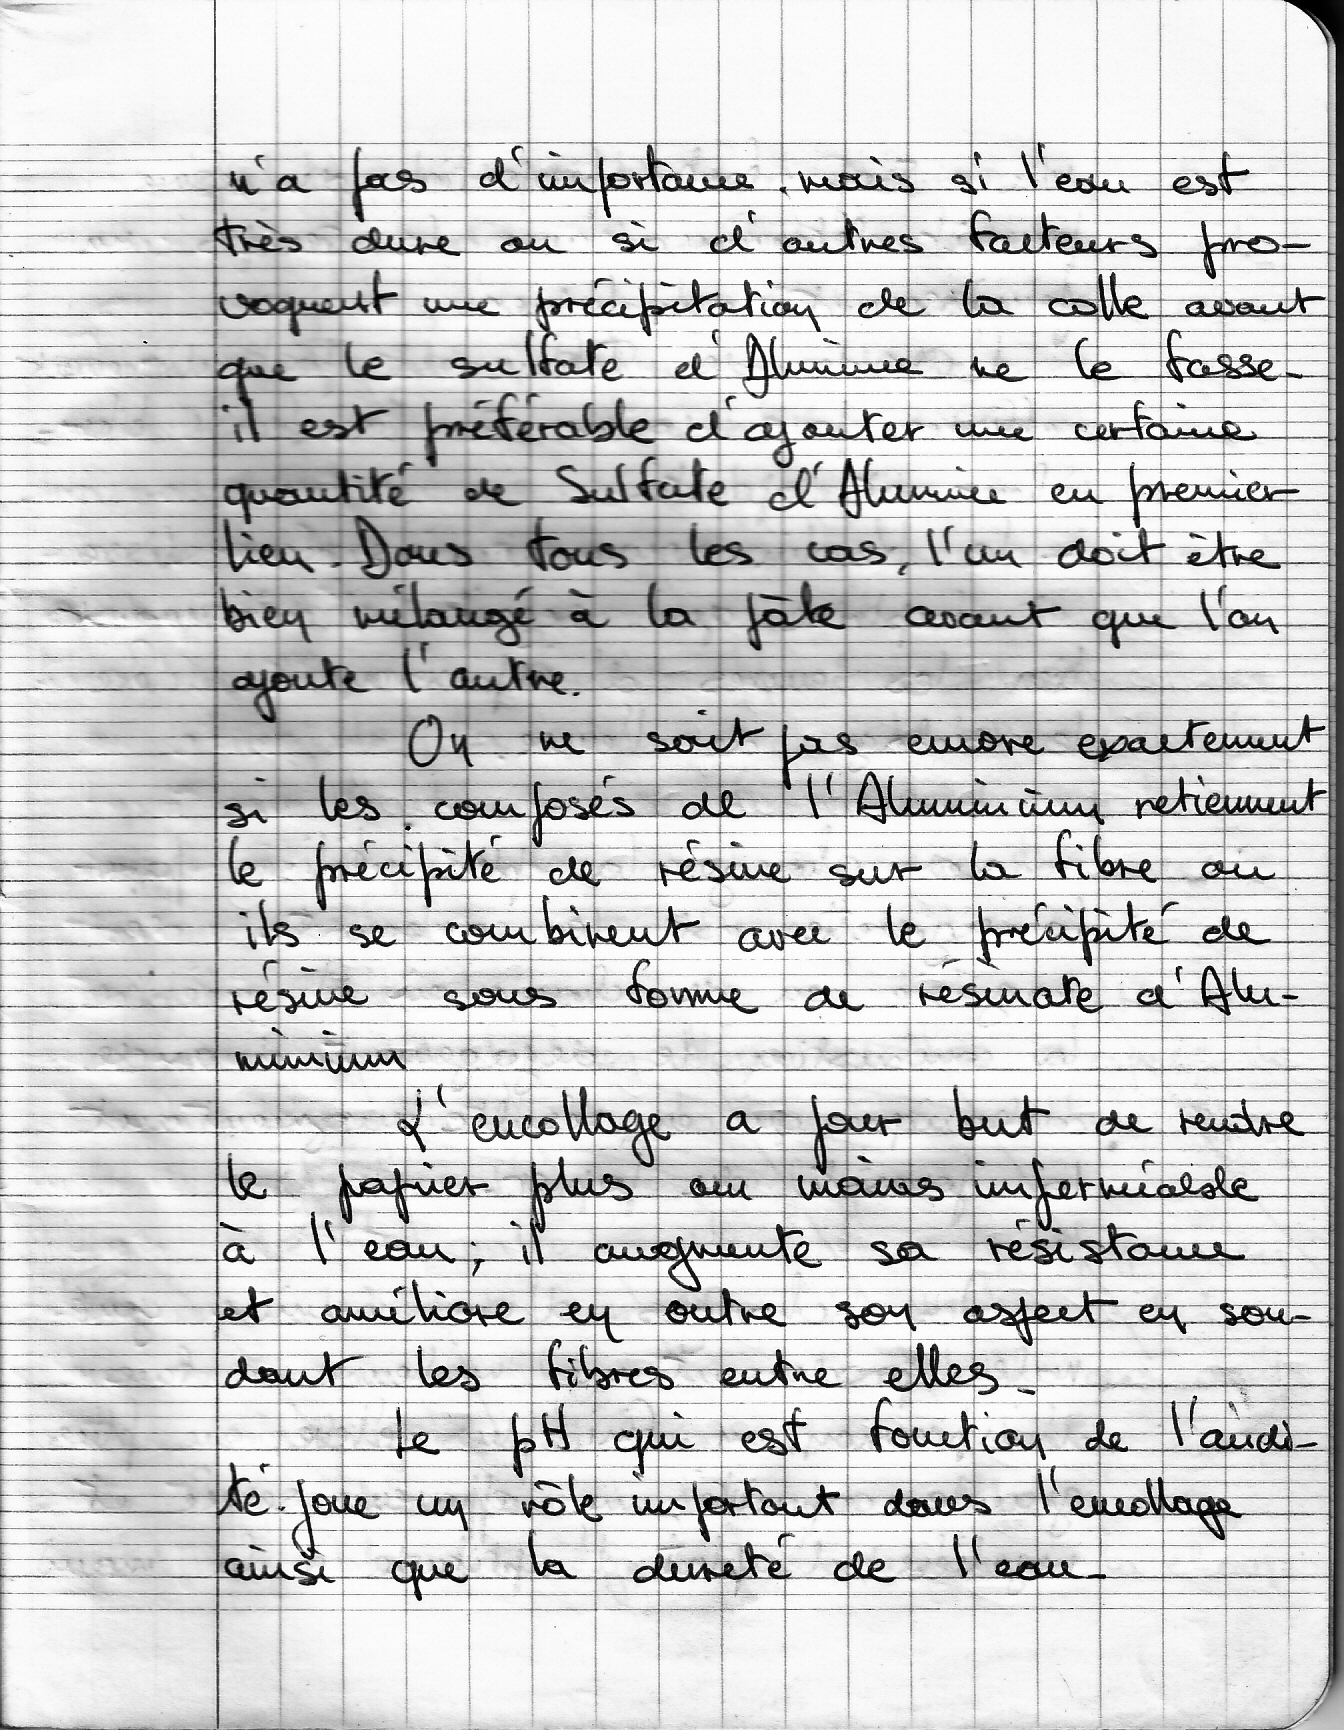 n'a pas d'importance. mais si l'eau est
très dure ou si d'autres facteurs pro-
voquent une précipitation de la colle avant
que le sulfate d'Alumine ne le fasse-
il est préférable d'ajouter une certaine
quantité de Sulfate d'Alumine en premier
lieu. Dans tous les cas, l'un doit être
bien mélangé à la pâte avant que l'on
ajoute l'autre.
On ne sait pas encore exactement
si les composés de l'Aluminium retiennent
le précipité de résine sur la fibre ou
ils se combinent avec le précipité de
résine sous forme de résinate d'Alu-
minium
L'encollage a pour but de rendre
le papier plus ou moins imperméable
à l'eau; il augmente sa résistance
et améliore en outre son aspect en sou-
dant les fibres entre elles.
Le pH qui est fonction de l'acidi-
té. joue un rôle important dans l'encollage
ainsi que la dureté de l'eau-